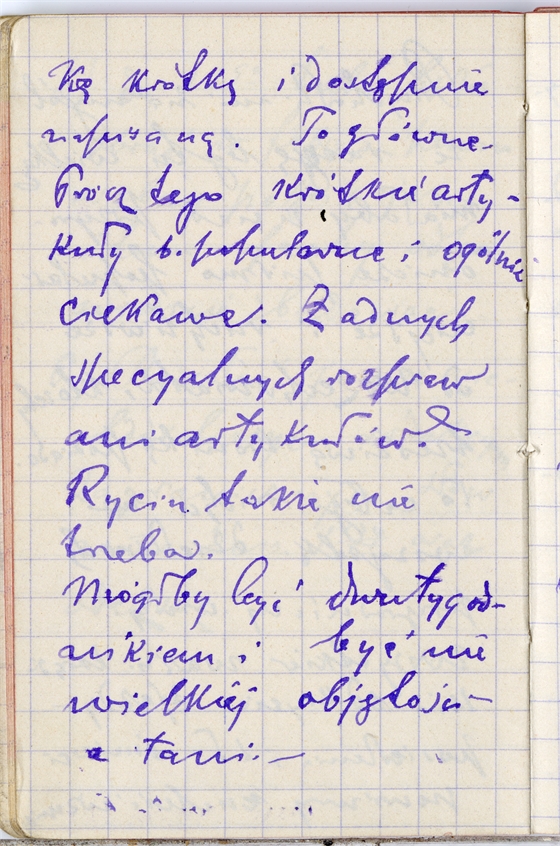 Ką krótką i dostępnie
napisaną. To główne.
Prócz tego krótkie arty-
kuły b. popularne i ogólnie
ciekawe. Żadnych
specyalnych rozpraw
ani artykułów.
Rycin także nie
trzeba.
Mógłby być dwutygod-
nikiem i być nie
wielkiej objętości
a tani. —